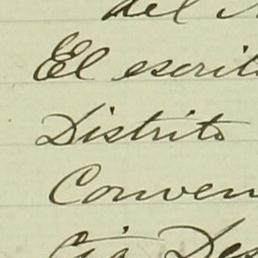 del
El escrit
Distrito
Conven
Des